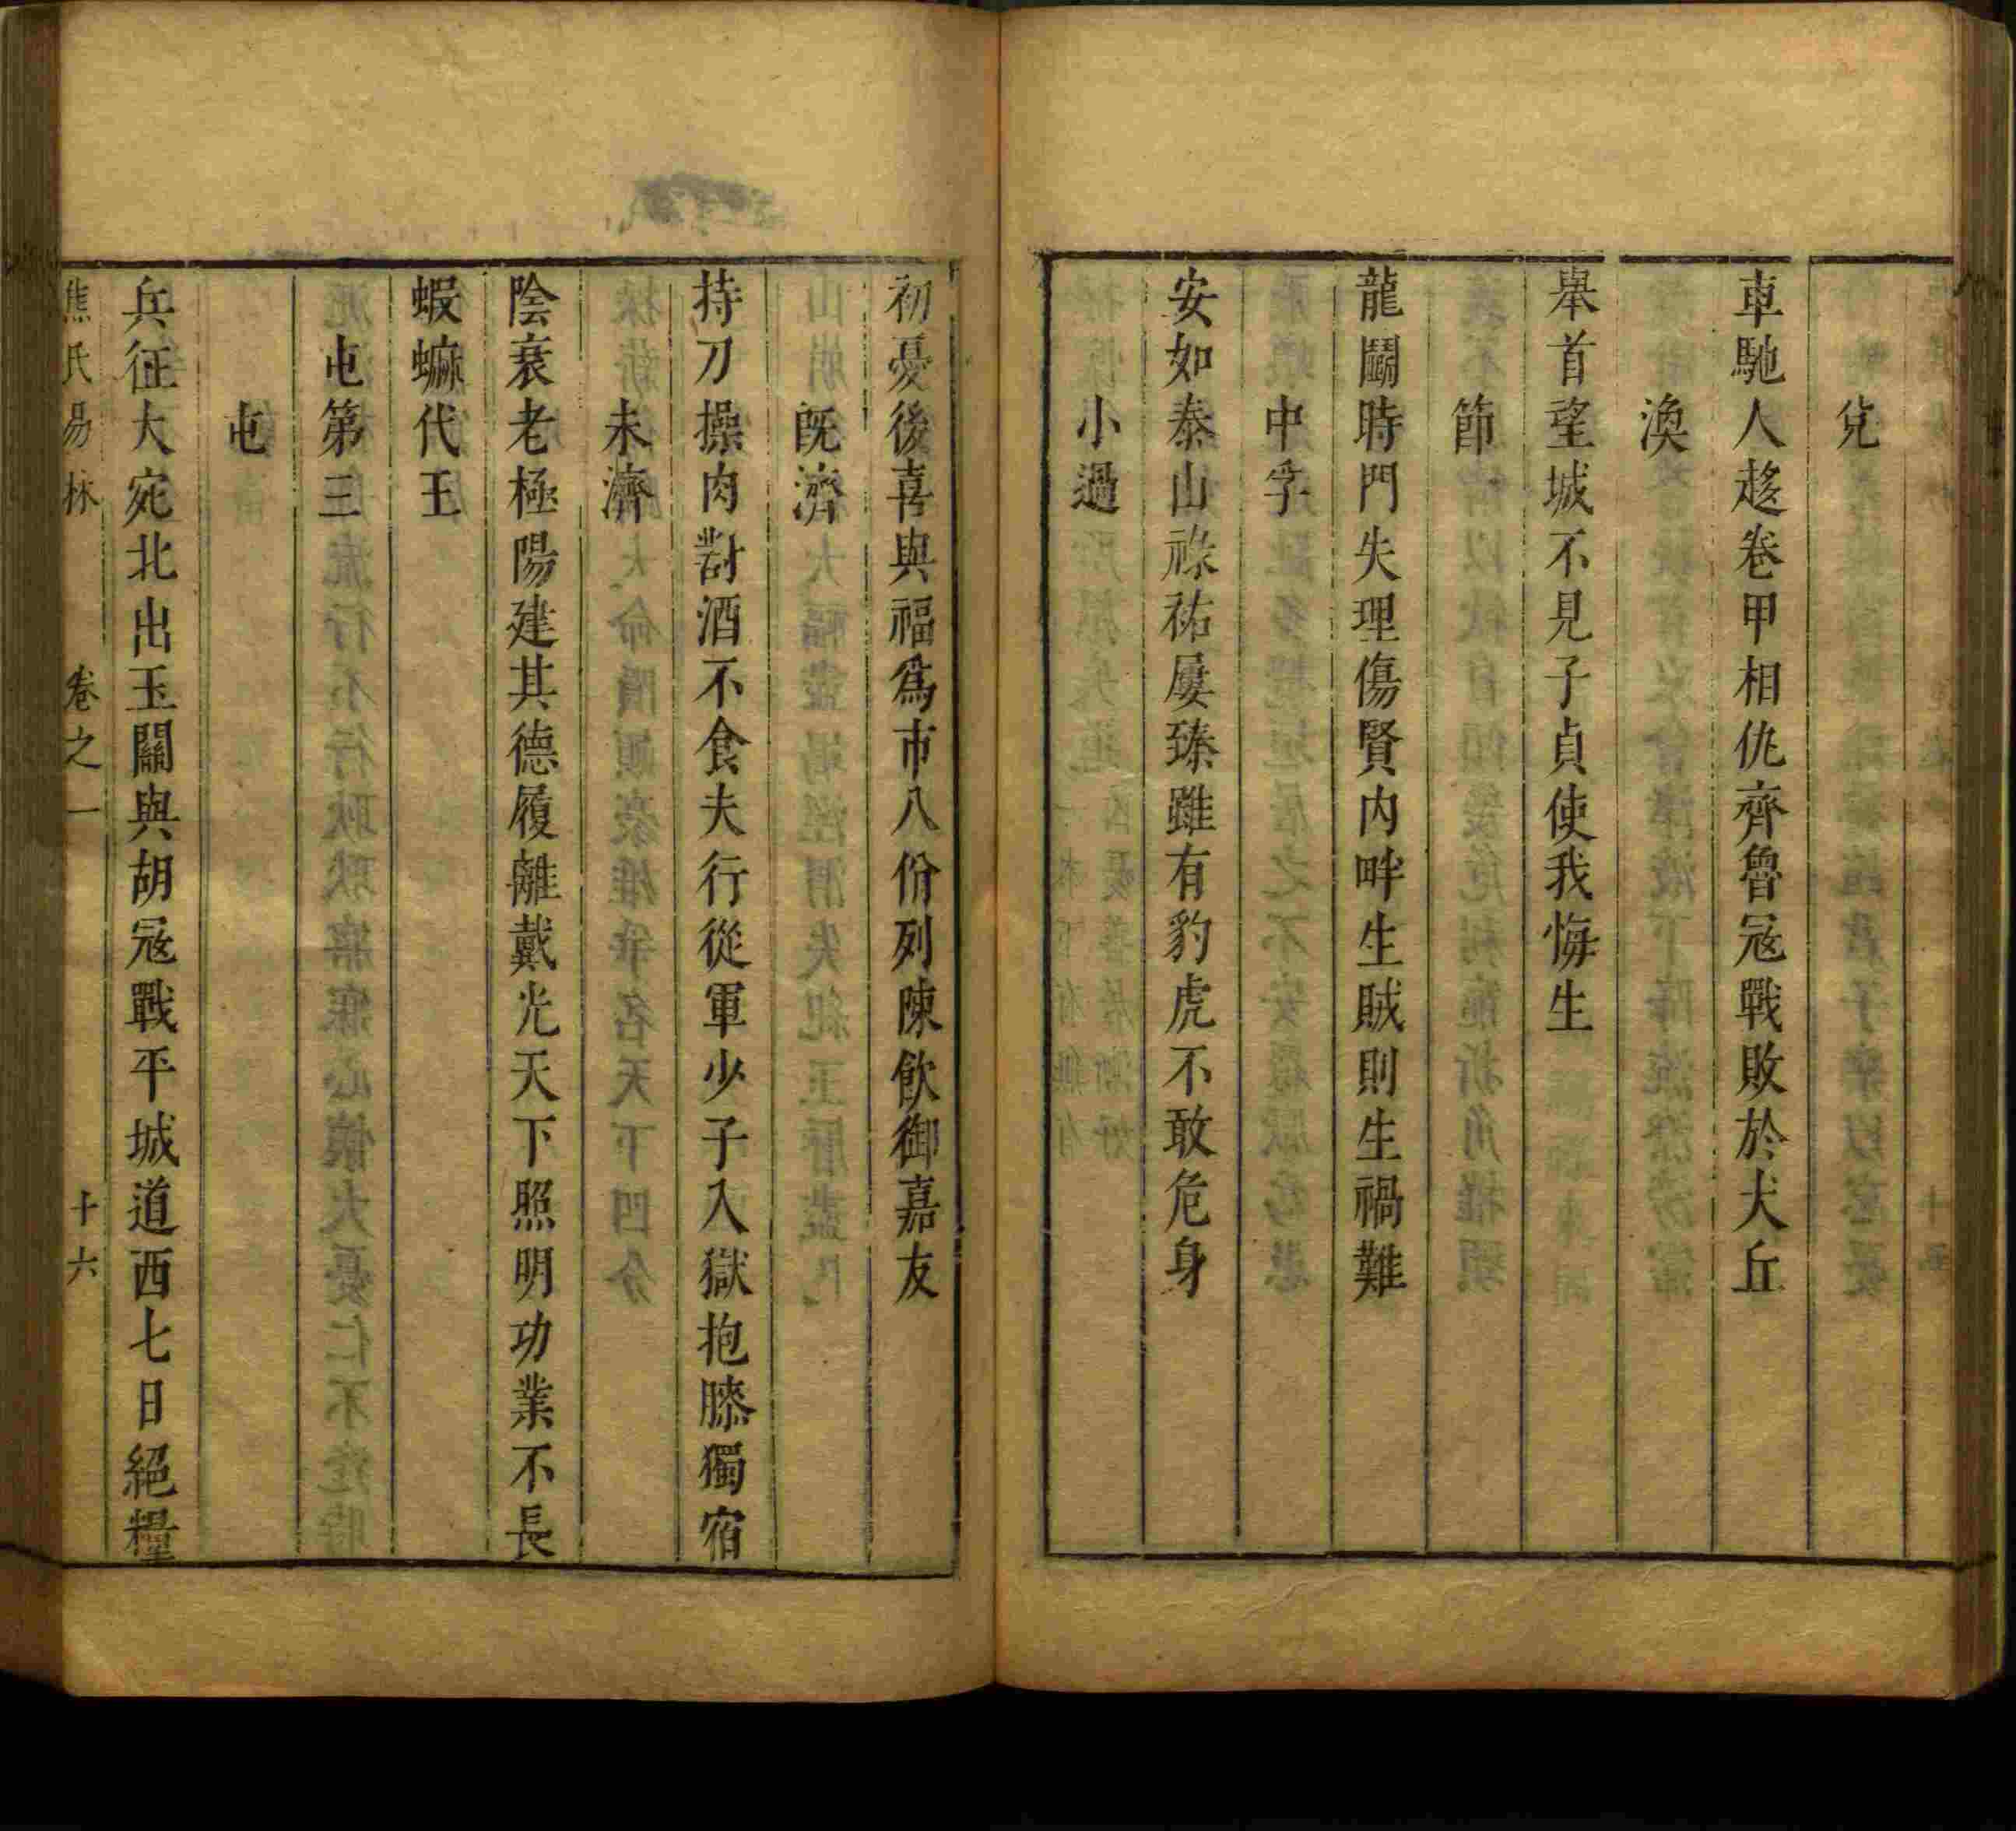 兌
車馳人趍卷甲相仇齊魯冦戰敗於犬丘
渙
舉首望城不見子貞使我悔生
節
龍鬭時門失理傷賢内畔生賊則生禍難
中孚
安如泰山祿祐屢臻雖有豹虎不敢危身
小過
初憂後喜與福爲市八佾列陳飲御嘉友
旣濟
持刀操肉對酒不食夫行從軍少子入獄抱膝獨宿
未濟
陰衰老極陽建其德履離戴光天下照明功業不長
蝦蟆代王
屯第三
屯
兵征大宛北出玉關與胡冦戰平城道西七日絕糧
焦氏易林 卷之一 十六